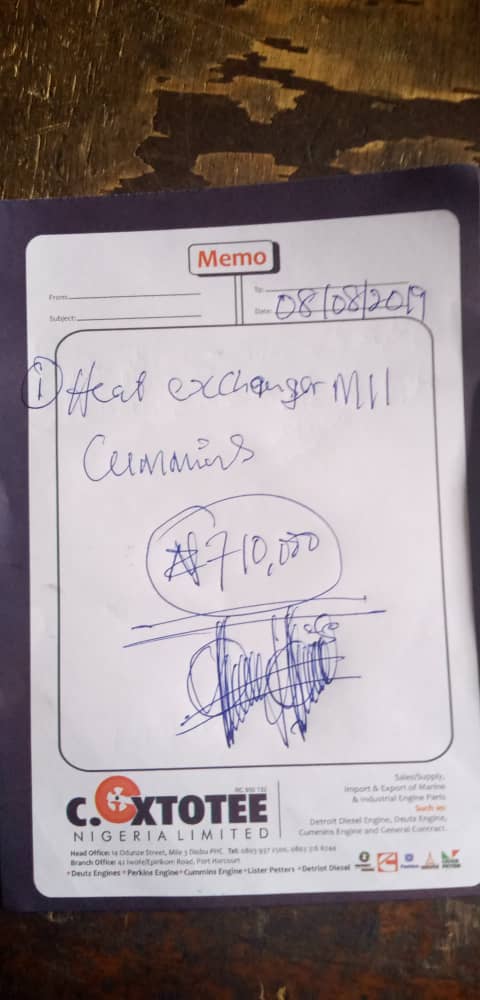 Memo
From:
To:
Subject:
Date: 08/08/2019
① Heat exchanger M11
Cummins
₦710,000
RC 950 132
C. EXTOTEE
NIGERIA LIMITED
Sales/Supply,
Import & Export of Marine
& Industrial Engine Parts
Such as:
Detroit Diesel Engine, Deutz Engine,
Cummins Engine and General Contract.
Head Office: 14 Odunze Street, Mile 3 Diobu PHC. Tel:
Branch Office: 42 Iwofe/Epirikom Road, Port Harcourt
• Deutz Engines • Perkins Engine • Cummins Engine • Lister Petters • Detriot Diesel